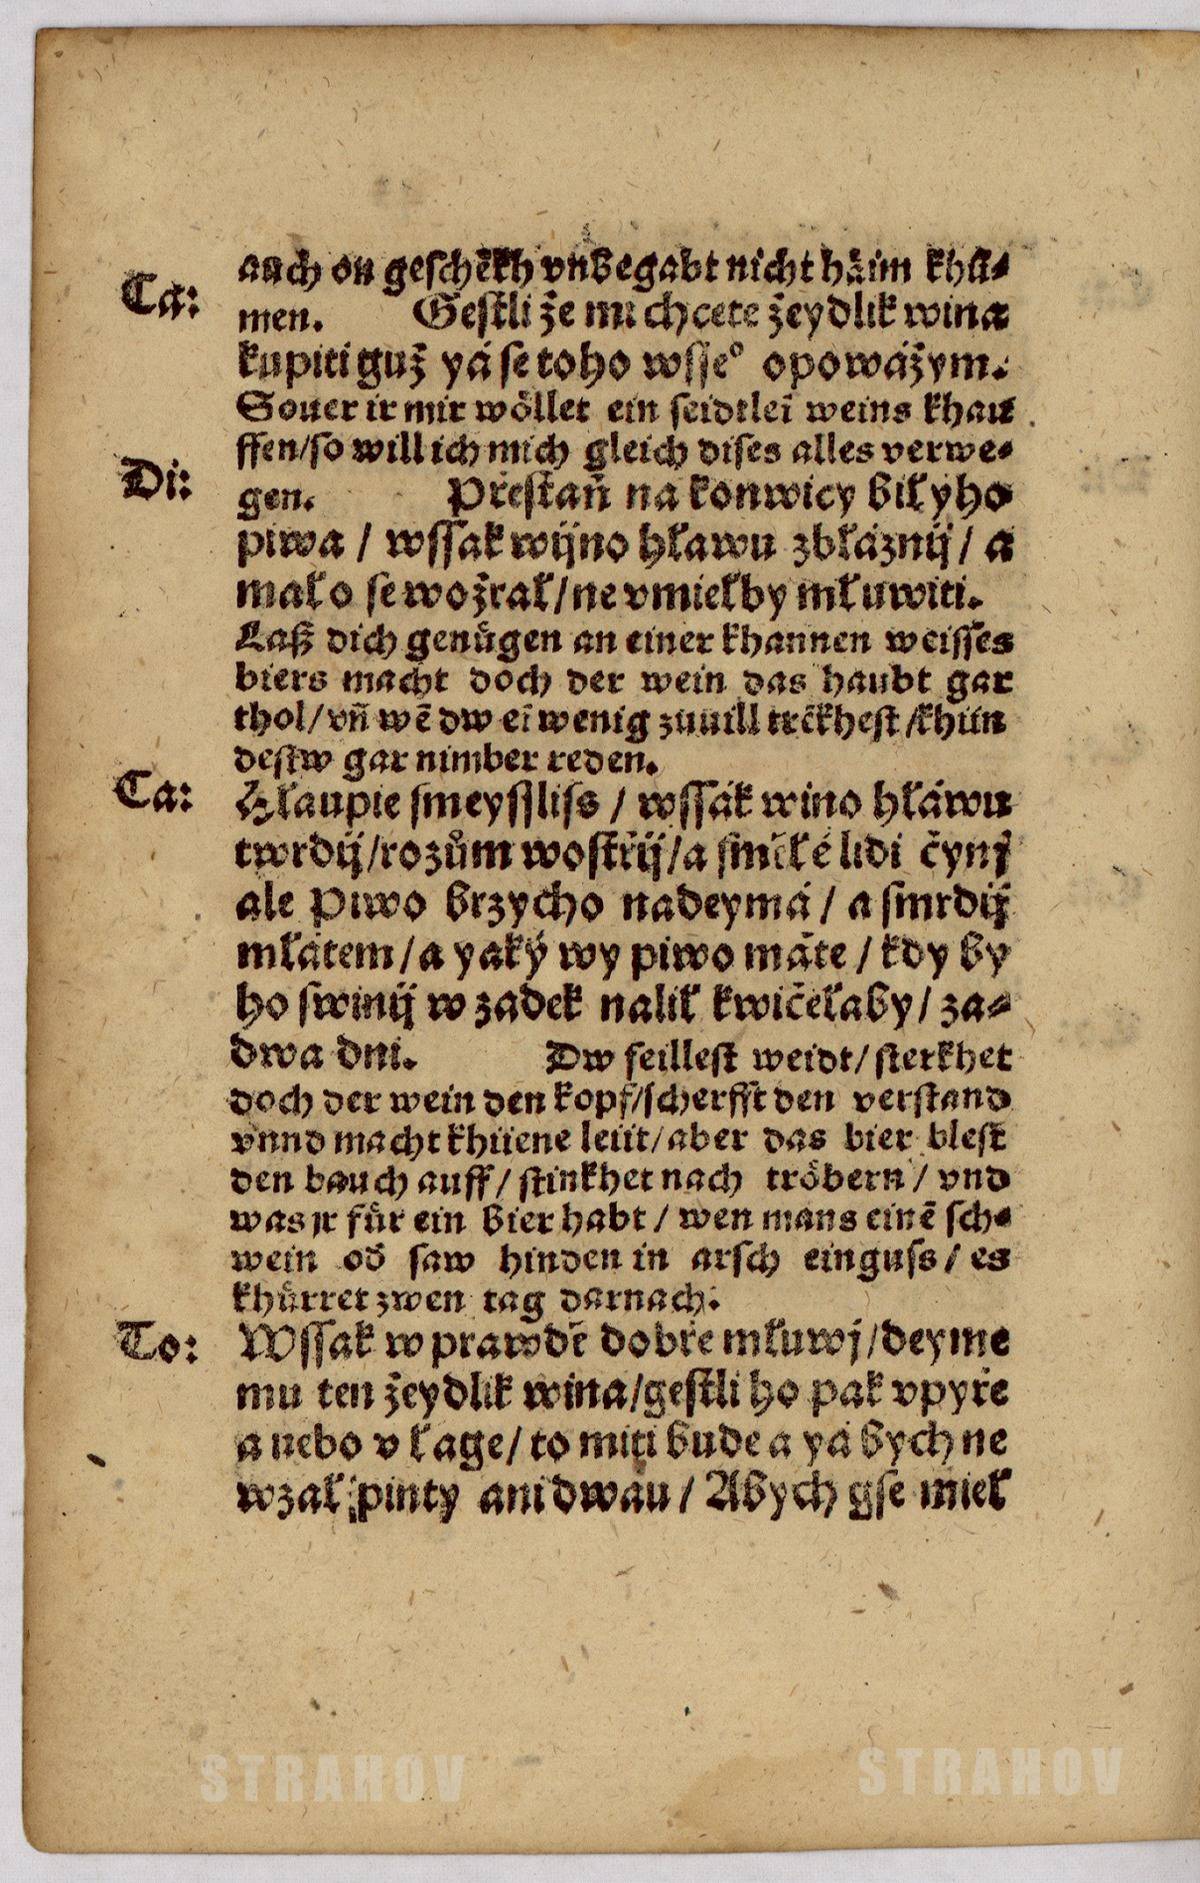 auch on geschēkh vnbegabt nicht häim khū⸗
Ca: men. Gestli že mi chcete žeydlik wina
kupiti guž yá se toho wsse° opowážym.
Souer ir mir wöllet ein seidtleī weins khau
ffen/so will ich mich gleich dises alles verwe⸗
Di: gen. Přestaň na konwicy biłyho
piwa / wssak wijno hławu zbłáznij / a
mało se wožrał/ne vmiełby młuwiti.
Laß dich genůgen an einer khannen weisses
biers macht doch der wein das haubt gar
thol/vñ wē dw eī wenig zuuill trēkhest /khün
destw gar nimber reden.
Ca: Hłaupie smeyssliss / wssák wino hławu
twrdij/rozům wostřij/a smělé lidi čynj
ale Piwo brzycho nadeymá / a smrdij
młátem/a yaký wy piwo máte / kdy by
ho swinij w zadek nalił kwičełaby/ za⸗
dwa dni. Dw feillest weidt/ sterkhet
doch der wein den kopf/scherfft den verstand
vnnd macht khüene leüt/aber das bier blest
den bauch auff/ stinkhet nach tröbern / vnd
was jr für ein bier habt / wen mans einē sch⸗
wein od saw hinden in arsch einguss/ es
khůrret zwen tag darnach.
To: Wssak w prawdě dobře młuwj/deyme
mu ten žeydlik wina/gestli ho pak vpyře
a nebo v łage/ to miti bude a yá bych ne
wzał pinty ani dwau / Abych gse mieł
STRAHOV STRAHOV